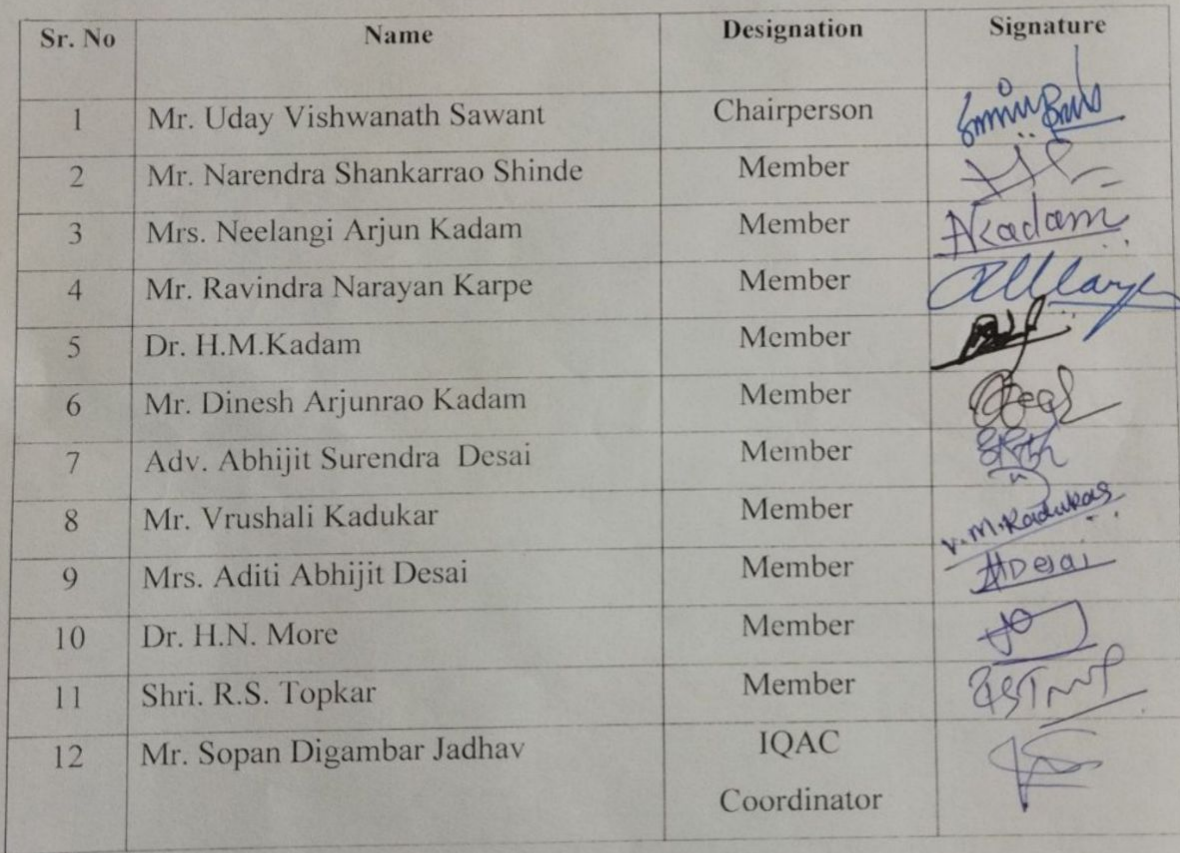 Sr. No Name Designation Signature
1 Mr. Uday Vishwanath Sawant Chairperson
2 Mr. Narendra Shankarrao Shinde Member
3 Mrs. Neelangi Arjun Kadam Member AKadam
4 Mr. Ravindra Narayan Karpe Member
5 Dr. H.M.Kadam Member
6 Mr. Dinesh Arjunrao Kadam Member
7 Adv. Abhijit Surendra Desai Member
8 Mr. Vrushali Kadukar Member V.M.Kadukar
9 Mrs. Aditi Abhijit Desai Member ADesai
10 Dr. H.N. More Member
11 Shri. R.S. Topkar Member
12 Mr. Sopan Digambar Jadhav IQAC
Coordinator